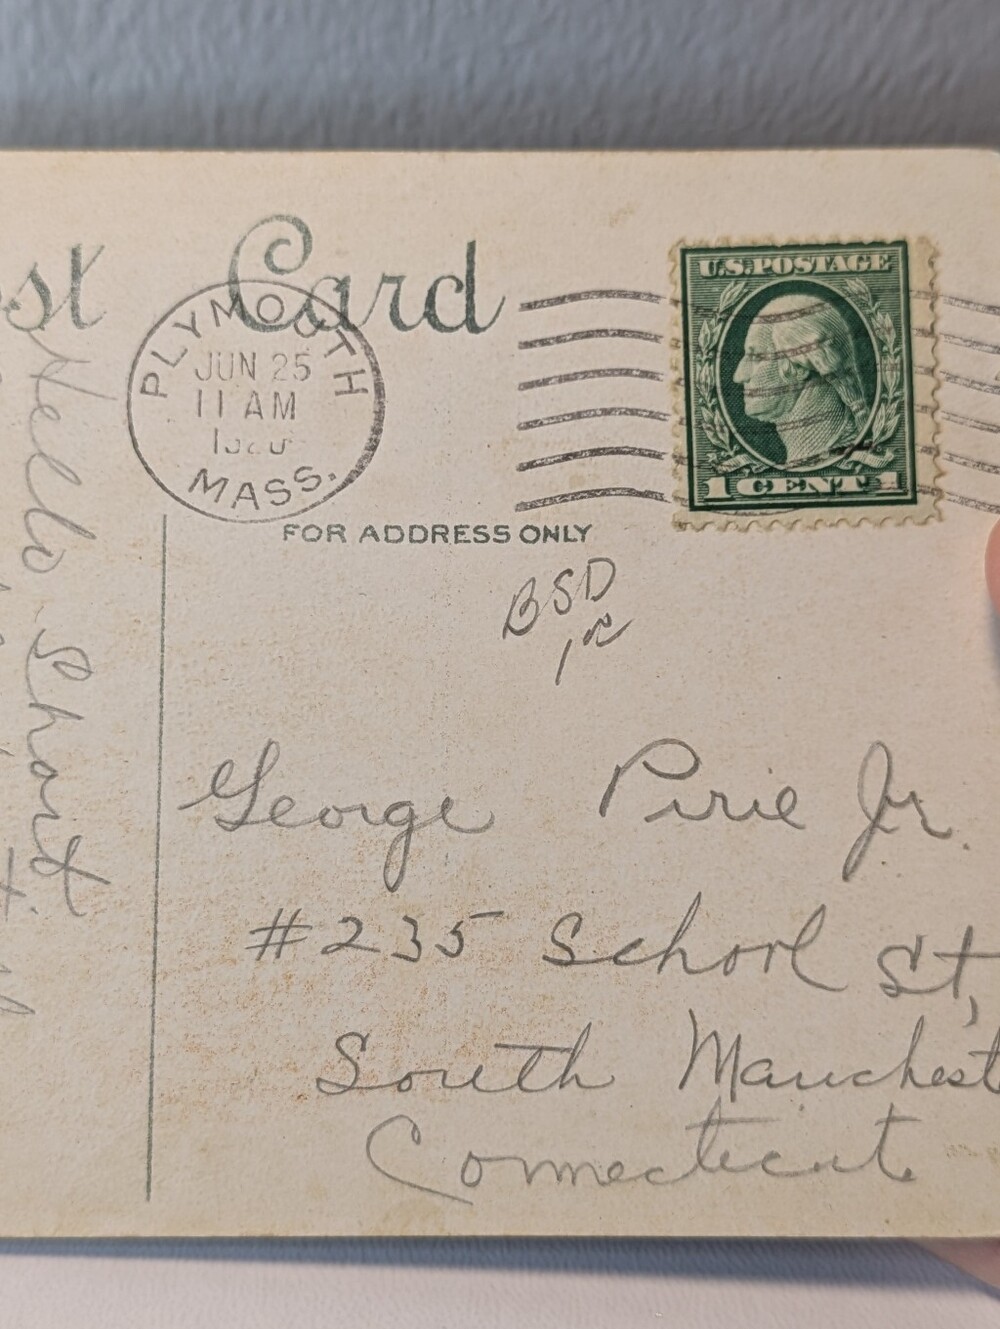 st Card
PLYMOUTH
JUN 25
11 AM
MASS.
U.S. POSTAGE
1 CENT 1
FOR ADDRESS ONLY
BSD
George Pirie Jr.
#235 School St,
South Manchest
Connecticut.
Hello Short